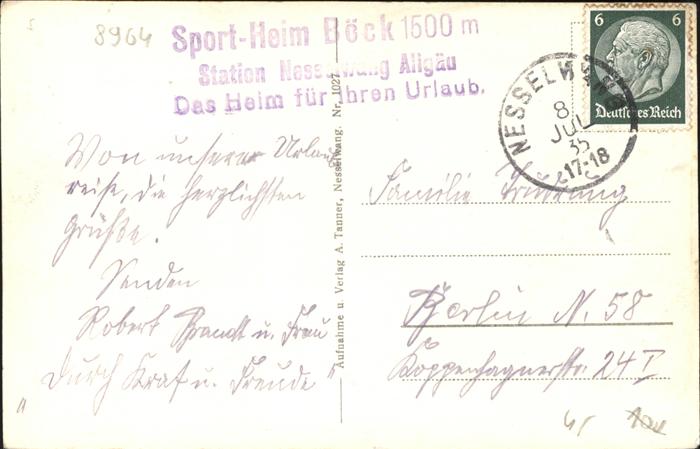 8964
Sport-Heim Böck 1500 m
Station Nesselwang Allgäu
Das Heim für Ihren Urlaub.
6 6
Deutsches Reich
NESSELWANG
8
JUL
35
17-18
Von unserer Urlaub
reise, die herzlichsten
Grüße.
Senden
Robert Brandt u. Frau
"Durch Kraf u. Freude"
Aufnahme u. Verlag A. Tanner, Nesselwang. Nr. 1027
Familie
Berlin N. 58
Koppenhagnerstr. 24 I